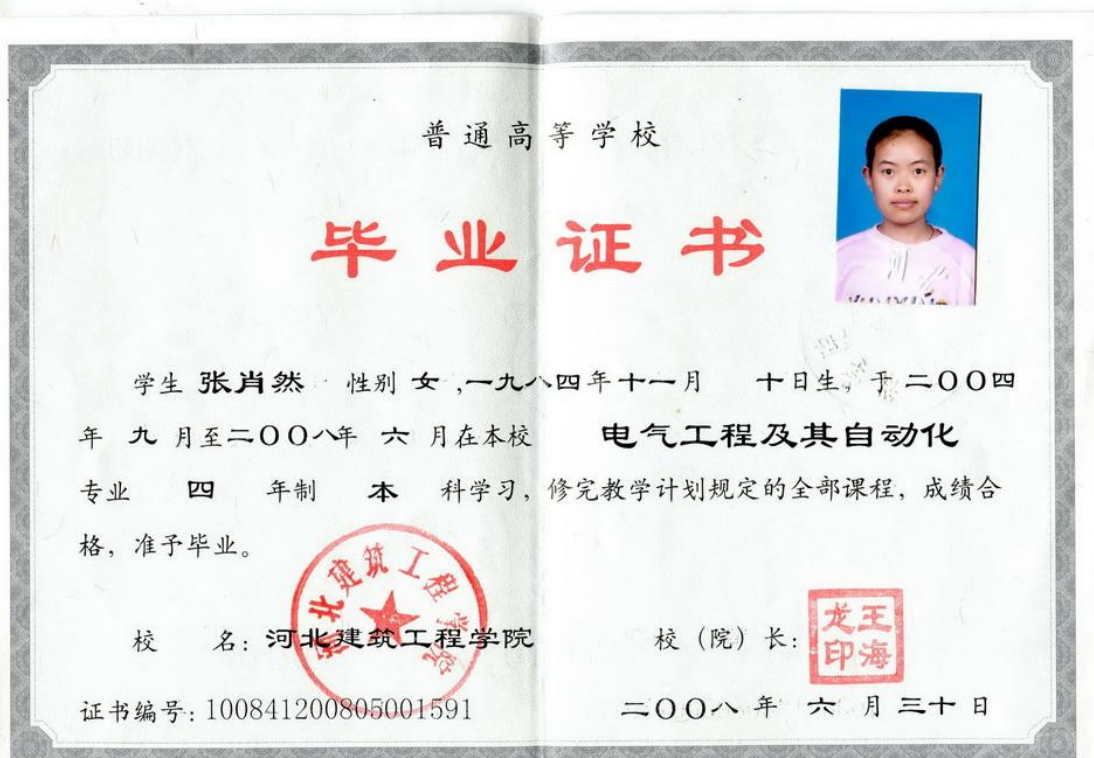 普通高等学校
毕业证书
学生 张肖然 性别 女,一九八四年十一月 十日生,于二〇〇四
年 九 月至二〇〇八年 六 月在本校 电气工程及其自动化
专业 四 年制 本 科学习,修完教学计划规定的全部课程,成绩合
格,准予毕业。
河北建筑工程学院
校 名:河北建筑工程学院 校(院)长:
王海龙印
证书编号:100841200805001591 二〇〇八年 六 月三十日